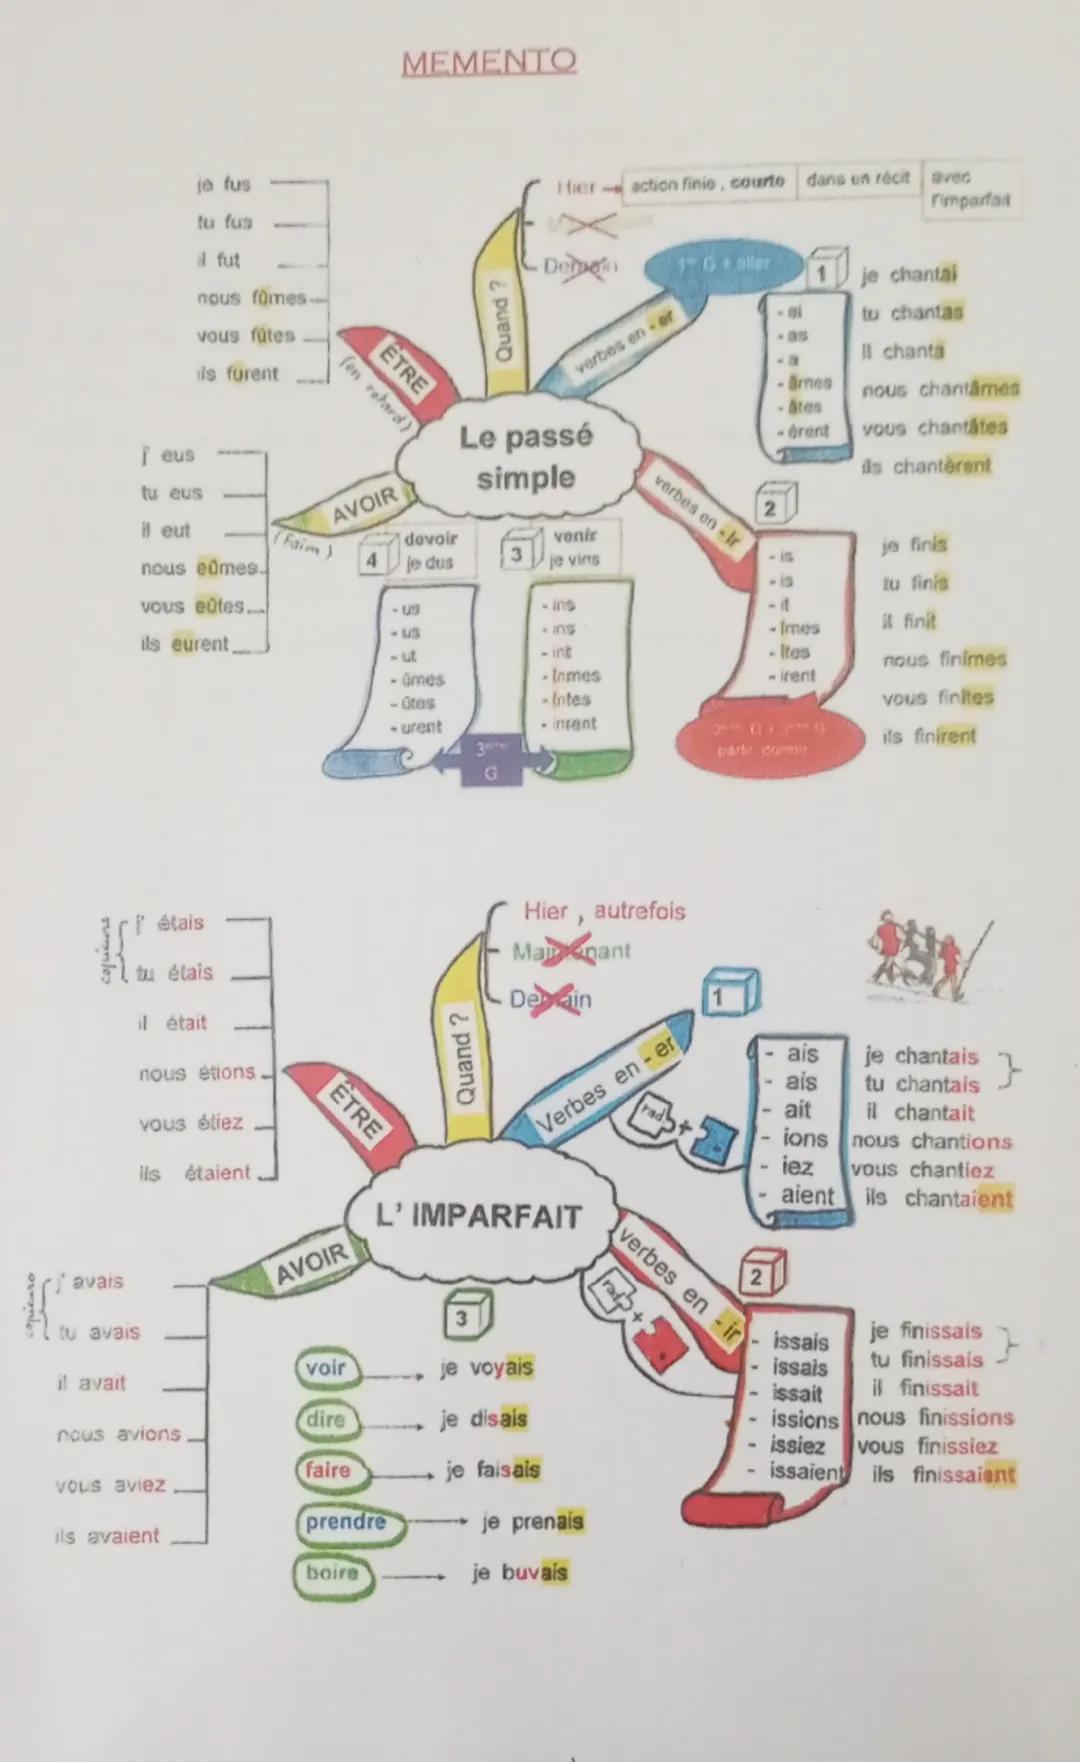 MEMENTO
je fus
tu fus
il fut
nous fûmes
vous fûtes
ils furent
ÊTRE
(en retard)
j' eus
tu eus
il eut
nous eûmes
vous eûtes
ils eurent
AVOIR
(Faim)
Quand ?
Hier
action finie, courte
dans un récit
avec
l'imparfait
Demain
Le passé
simple
verbes en - er
1er G + aller
1
- ai
- as
- a
- âmes
- âtes
- èrent
je chantai
tu chantas
Il chanta
nous chantâmes
vous chantâtes
ils chantèrent
verbes en - ir
2
- is
- is
- it
- îmes
- îtes
- irent
je finis
tu finis
il finit
nous finîmes
vous finîtes
ils finirent
partir dormir
4
devoir
je dus
- us
- us
- ut
- ûmes
- ûtes
- urent
3
venir
je vins
- ins
- ins
- int
- înmes
- întes
- inrent
3ème
G
copieurs
j' étais
tu étais
il était
nous étions
vous étiez
ils étaient
ÊTRE
Quand ?
Hier , autrefois
Maintenant
Demain
L' IMPARFAIT
Verbes en - er
1
rad
+
- ais
- ais
- ait
- ions
- iez
- aient
je chantais
tu chantais
il chantait
nous chantions
vous chantiez
ils chantaient
AVOIR
j' avais
tu avais
il avait
nous avions
vous aviez
ils avaient
verbes en - ir
2
rad
+
- issais
- issais
- issait
- issions
- issiez
- issaient
je finissais
tu finissais
il finissait
nous finissions
vous finissiez
ils finissaient
3
voir je voyais
dire je disais
faire je faisais
prendre je prenais
boire je buvais